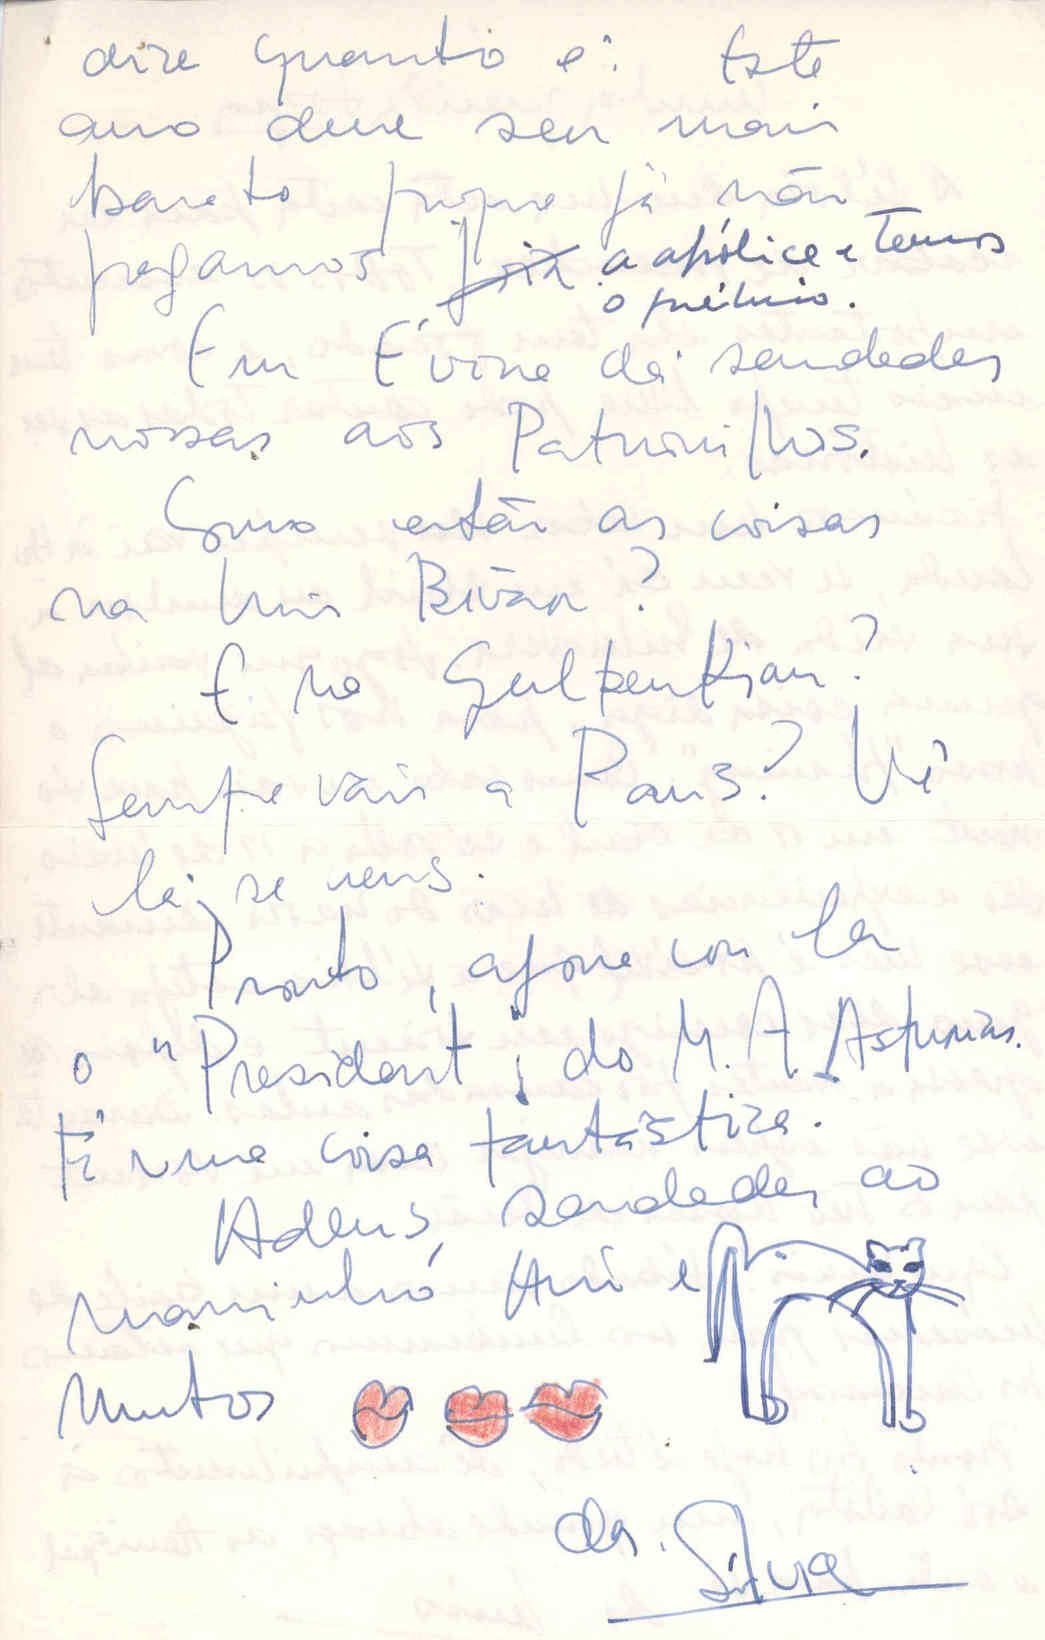 dize quanto é! Este
ano deve ser mais
barato porque já não
pagamos a apólice e temos
o prémio.
Em Évora dá saudades
nossas aos Patrorilhos.
Como estão as coisas
na Luis Bívar?
E na Gulbenkian?
Sempre vais a Paris? Vê
lá, se vens.
Pronto, agora vou ler
o "President", do M. A. Asturias.
É uma coisa fantástica.
Adeus, saudades ao
Marinho Ari e
Muitos
da Sílvia